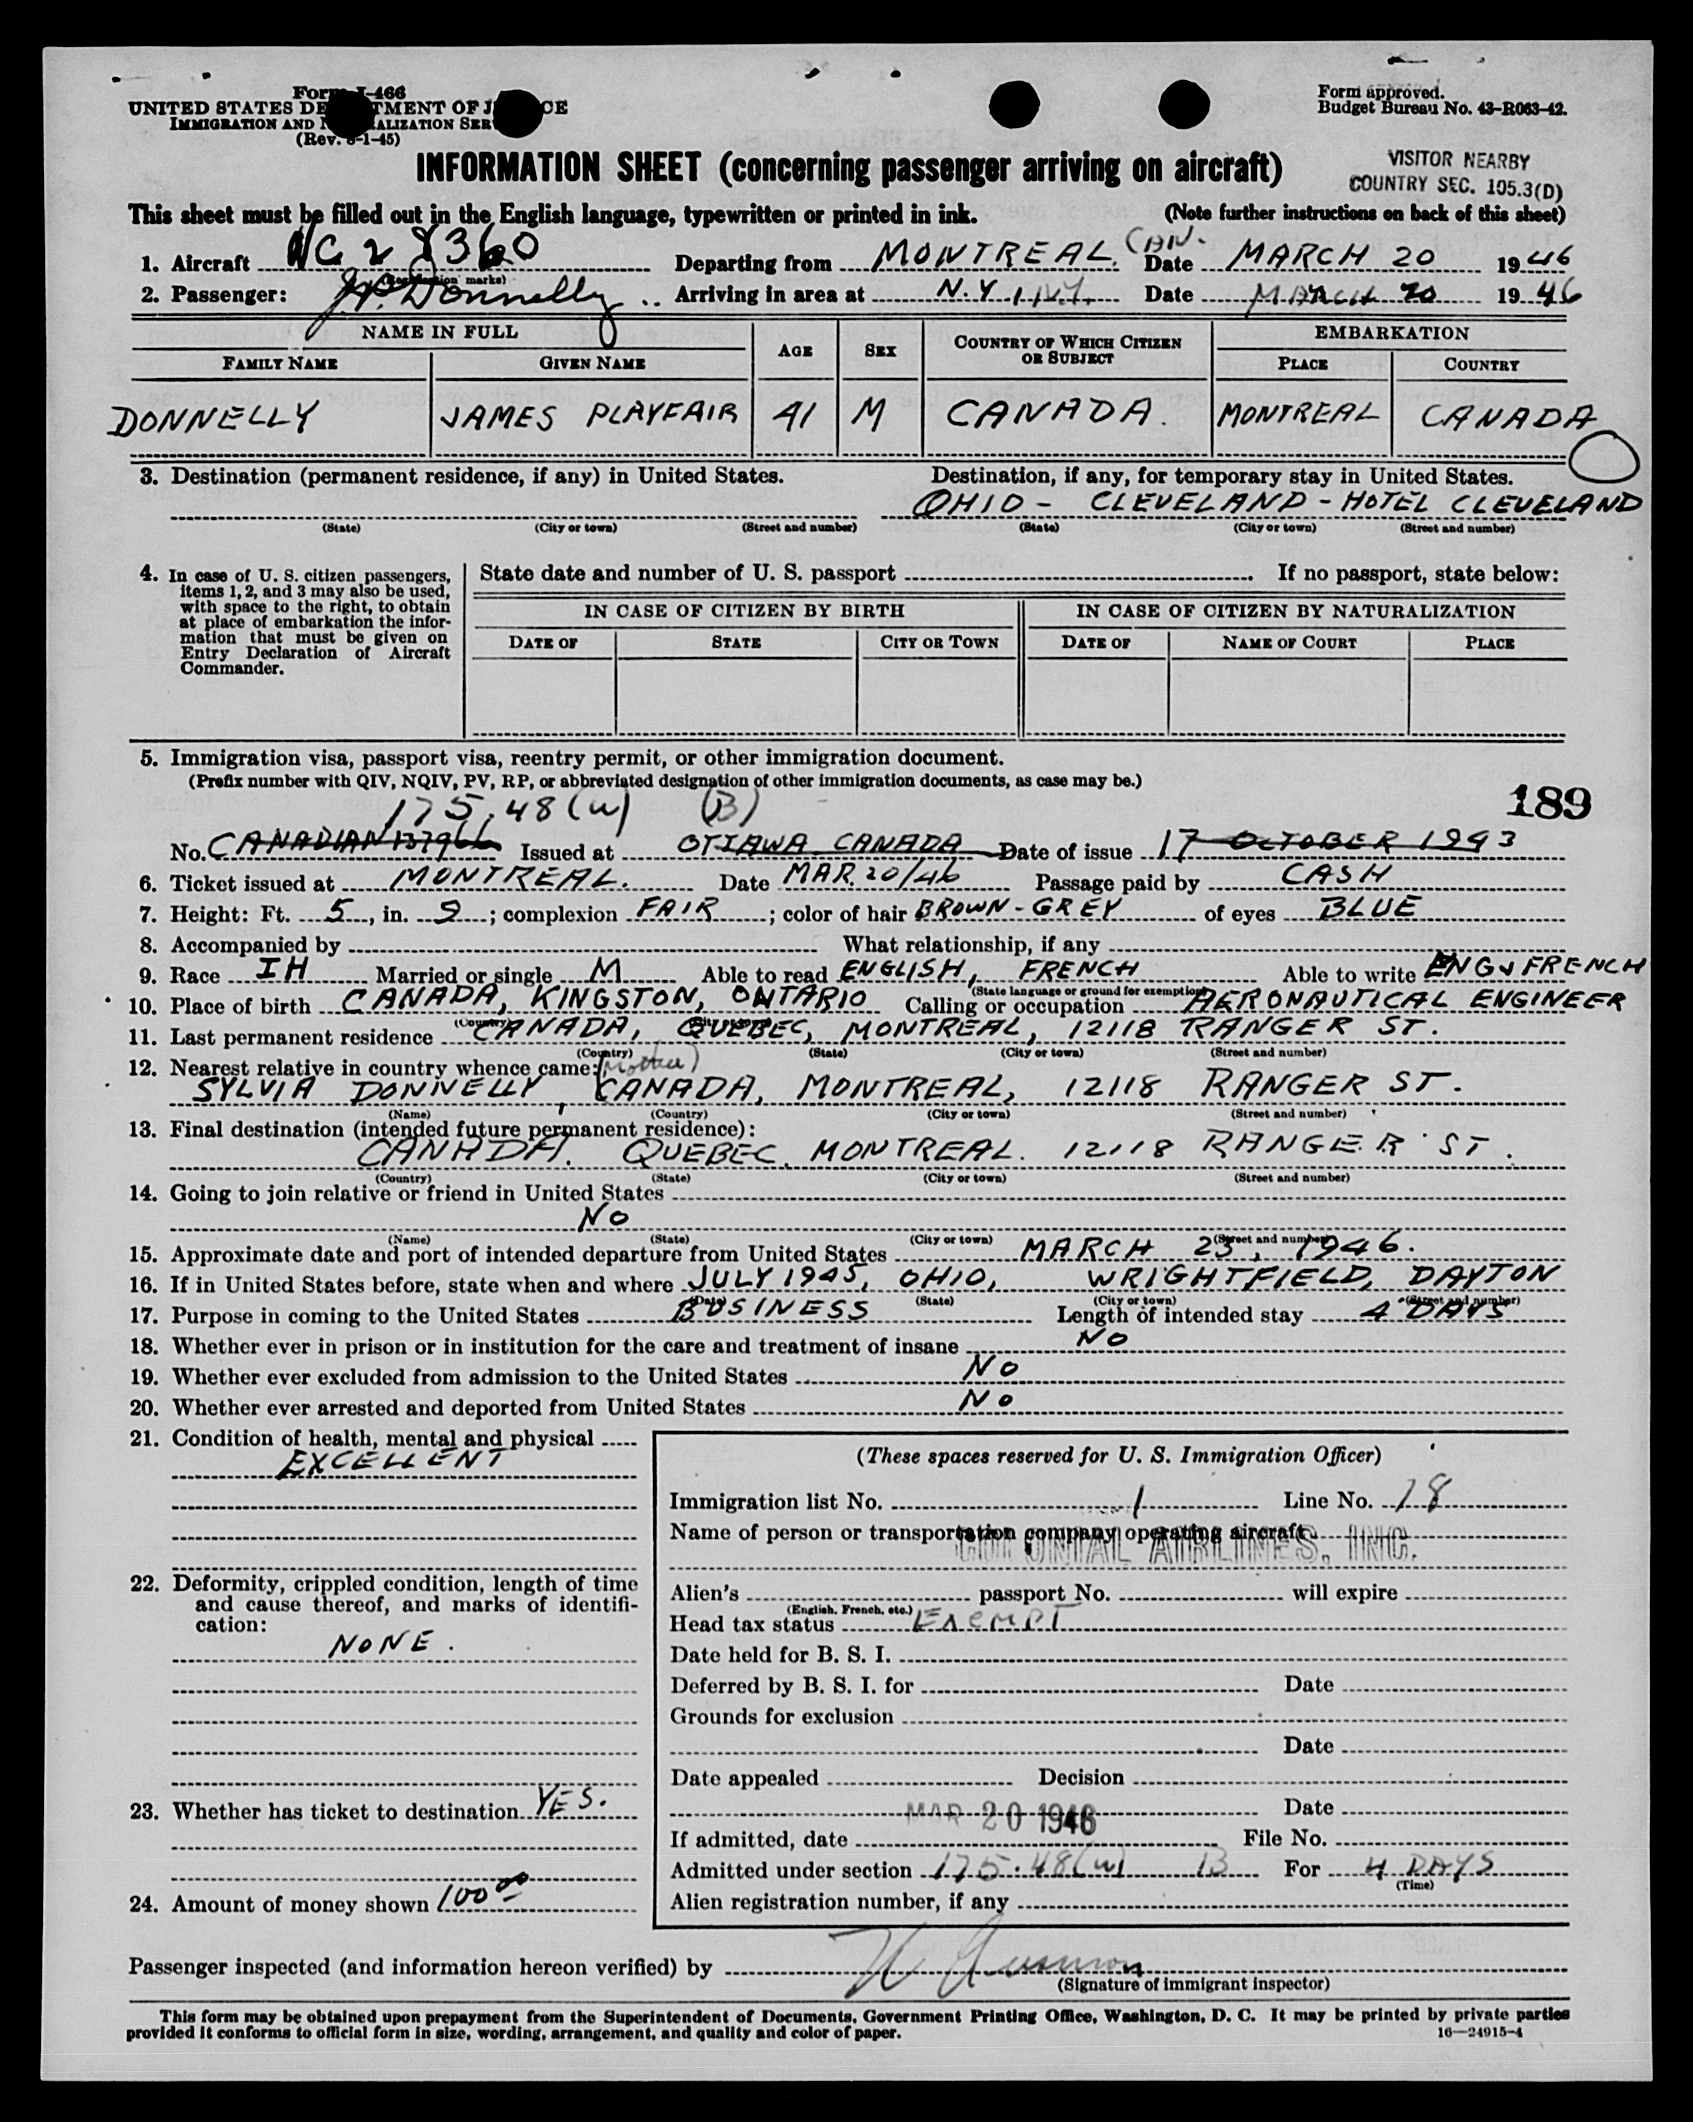 Form I-466
UNITED STATES DEPARTMENT OF JUSTICE
IMMIGRATION AND NATURALIZATION SERVICE
(Rev. 8-1-45)
Form approved.
Budget Bureau No. 43-R063-42.
INFORMATION SHEET (concerning passenger arriving on aircraft)
VISITOR NEARBY
COUNTRY SEC. 195.3(D)
This sheet must be filled out in the English language, typewritten or printed in ink. (Note further instructions on back of this sheet)
1. Aircraft NC 28360 Departing from MONTREAL, CAN. Date MARCH 20 1946
(Registration marks)
2. Passenger: J.P. Donnelly Arriving in area at N.Y., N.Y. Date MARCH 20 1946
NAME IN FULL AGE SEX COUNTRY OF WHICH CITIZEN OR SUBJECT EMBARKATION
FAMILY NAME GIVEN NAME PLACE COUNTRY
DONNELLY JAMES PLAYFAIR 41 M CANADA. MONTREAL CANADA
3. Destination (permanent residence, if any) in United States. Destination, if any, for temporary stay in United States.
OHIO - CLEVELAND - HOTEL CLEVELAND
(State) (City or town) (Street and number) (State) (City or town) (Street and number)
4. In case of U. S. citizen passengers, items 1, 2, and 3 may also be used, with space to the right, to obtain at place of embarkation the information that must be given on Entry Declaration of Aircraft Commander.
State date and number of U. S. passport If no passport, state below:
IN CASE OF CITIZEN BY BIRTH IN CASE OF CITIZEN BY NATURALIZATION
DATE OF STATE CITY OR TOWN DATE OF NAME OF COURT PLACE
5. Immigration visa, passport visa, reentry permit, or other immigration document.
(Prefix number with QIV, NQIV, PV, RP, or abbreviated designation of other immigration documents, as case may be.)
175.48(w) (B) 189
No. CANADIAN 137966 Issued at OTTAWA CANADA Date of issue 17 OCTOBER 1943
6. Ticket issued at MONTREAL. Date MAR. 20/46 Passage paid by CASH
7. Height: Ft. 5, in. 9; complexion FAIR; color of hair BROWN-GREY of eyes BLUE
8. Accompanied by What relationship, if any
9. Race IH Married or single M Able to read ENGLISH, FRENCH Able to write ENG & FRENCH
(State language or ground for exemption)
10. Place of birth CANADA, KINGSTON, ONTARIO Calling or occupation AERONAUTICAL ENGINEER
(Country) (City or town)
11. Last permanent residence CANADA, QUEBEC, MONTREAL, 12118 RANGER ST.
(Country) (State) (City or town) (Street and number)
12. Nearest relative in country whence came: (Mother)
SYLVIA DONNELLY, CANADA, MONTREAL, 12118 RANGER ST.
(Name) (Country) (City or town) (Street and number)
13. Final destination (intended future permanent residence):
CANADA. QUEBEC. MONTREAL. 12118 RANGER ST.
(Country) (State) (City or town) (Street and number)
14. Going to join relative or friend in United States
NO
(Name) (State) (City or town) (Street and number)
15. Approximate date and port of intended departure from United States MARCH 23, 1946.
16. If in United States before, state when and where JULY 1945, OHIO, WRIGHTFIELD, DAYTON
(Date) (State) (City or town) (Street and number)
17. Purpose in coming to the United States BUSINESS Length of intended stay 4 DAYS
18. Whether ever in prison or in institution for the care and treatment of insane NO
19. Whether ever excluded from admission to the United States NO
20. Whether ever arrested and deported from United States NO
21. Condition of health, mental and physical
EXCELLENT
22. Deformity, crippled condition, length of time and cause thereof, and marks of identification:
NONE.
23. Whether has ticket to destination YES.
24. Amount of money shown 100.00
(These spaces reserved for U. S. Immigration Officer)
Immigration list No. 1 Line No. 18
Name of person or transportation company operating aircraft
COLONIAL AIRLINES, INC.
Alien's passport No. will expire
(English, French, etc.)
Head tax status Exempt
Date held for B. S. I.
Deferred by B. S. I. for Date
Grounds for exclusion
Date
Date appealed Decision
Date
MAR 20 1946
If admitted, date File No.
Admitted under section 175.48(w) B For 4 DAYS
(Time)
Alien registration number, if any
Passenger inspected (and information hereon verified) by
(Signature of immigrant inspector)
This form may be obtained upon prepayment from the Superintendent of Documents, Government Printing Office, Washington, D. C. It may be printed by private parties
provided it conforms to official form in size, wording, arrangement, and quality and color of paper. 16—24915-4